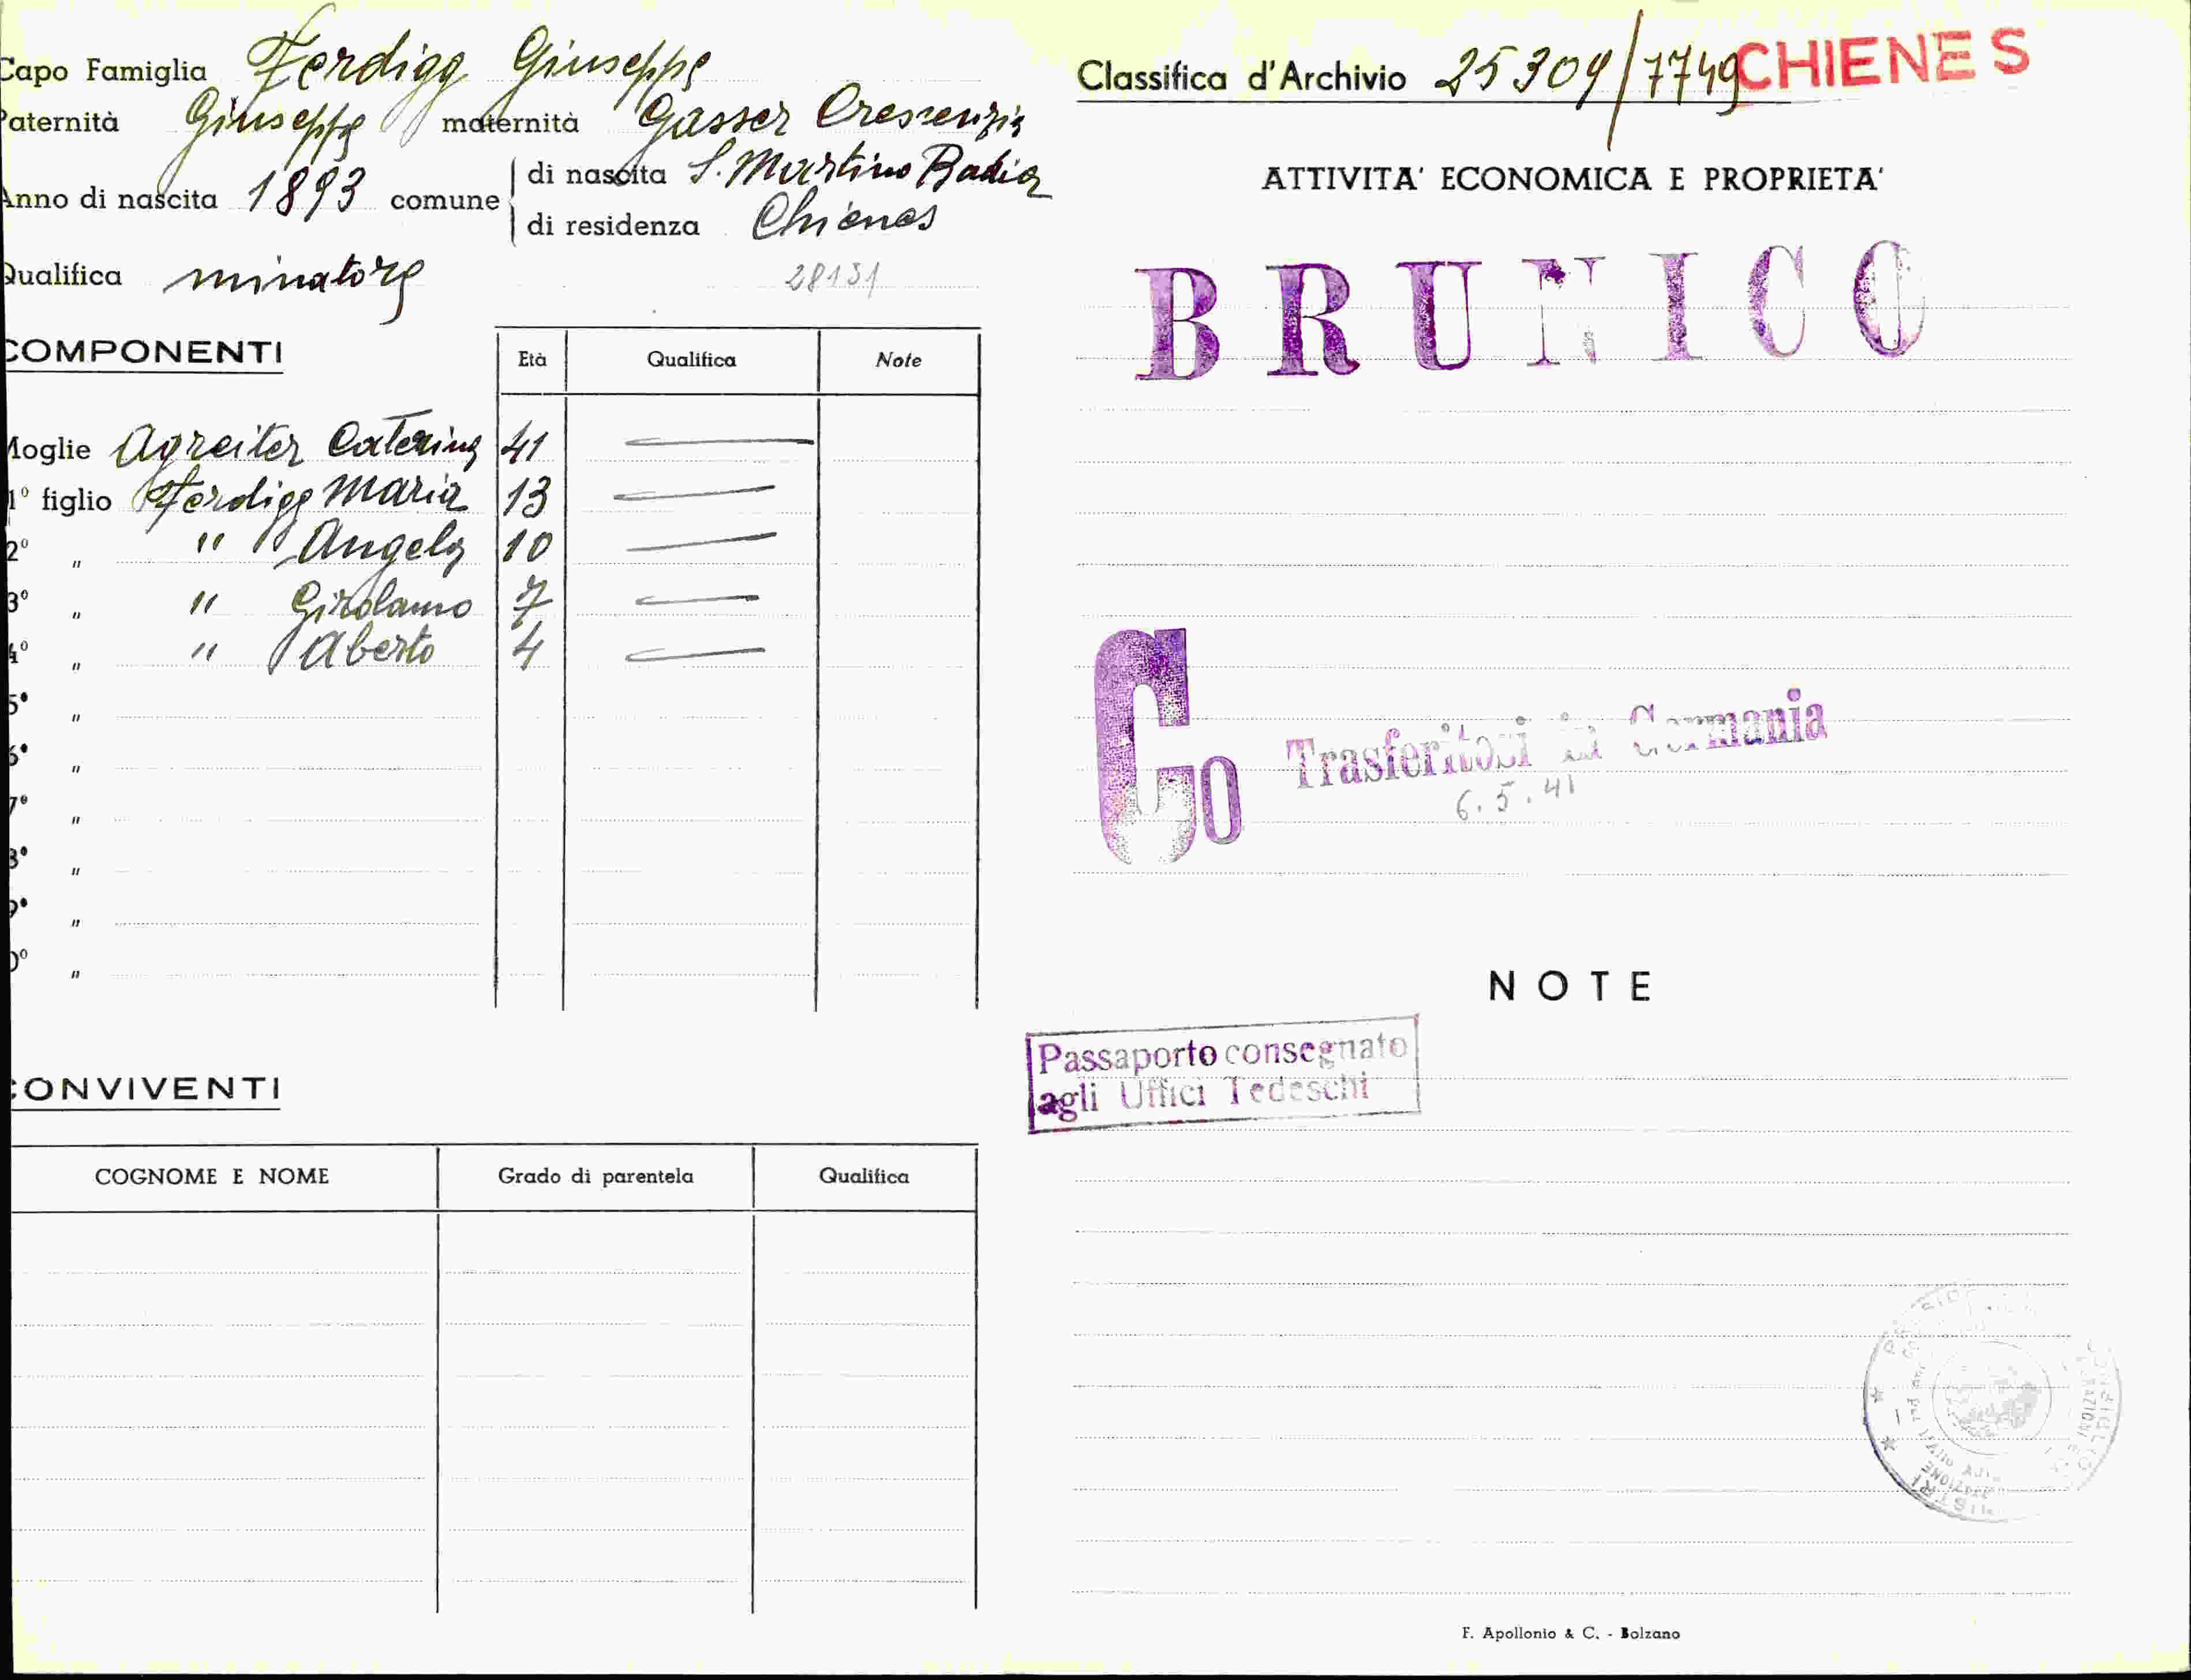 Capo Famiglia Ferdigg Giuseppe
Paternità Giuseppe maternità Gasser Crescenzia
Anno di nascita 1893 comune di nascita S. Martino Badia
di residenza Chienes
Qualifica minatore
28131
COMPONENTI Età Qualifica Note
Moglie Agreiter Caterina 41
1º figlio Ferdigg Maria 13
2º " " Angela 10
3º " " Girolamo 7
4º " " Alberto 4
5º "
6º "
7º "
8º "
9º "
0º "
CONVIVENTI
COGNOME E NOME Grado di parentela Qualifica
Classifica d'Archivio 25309/7749 CHIENES
ATTIVITA' ECONOMICA E PROPRIETA'
BRUNICO
Co Trasferitosi in Germania
6.5.41
NOTE
Passaporto consegnato
agli Uffici Tedeschi
F. Apollonio & C. - Bolzano